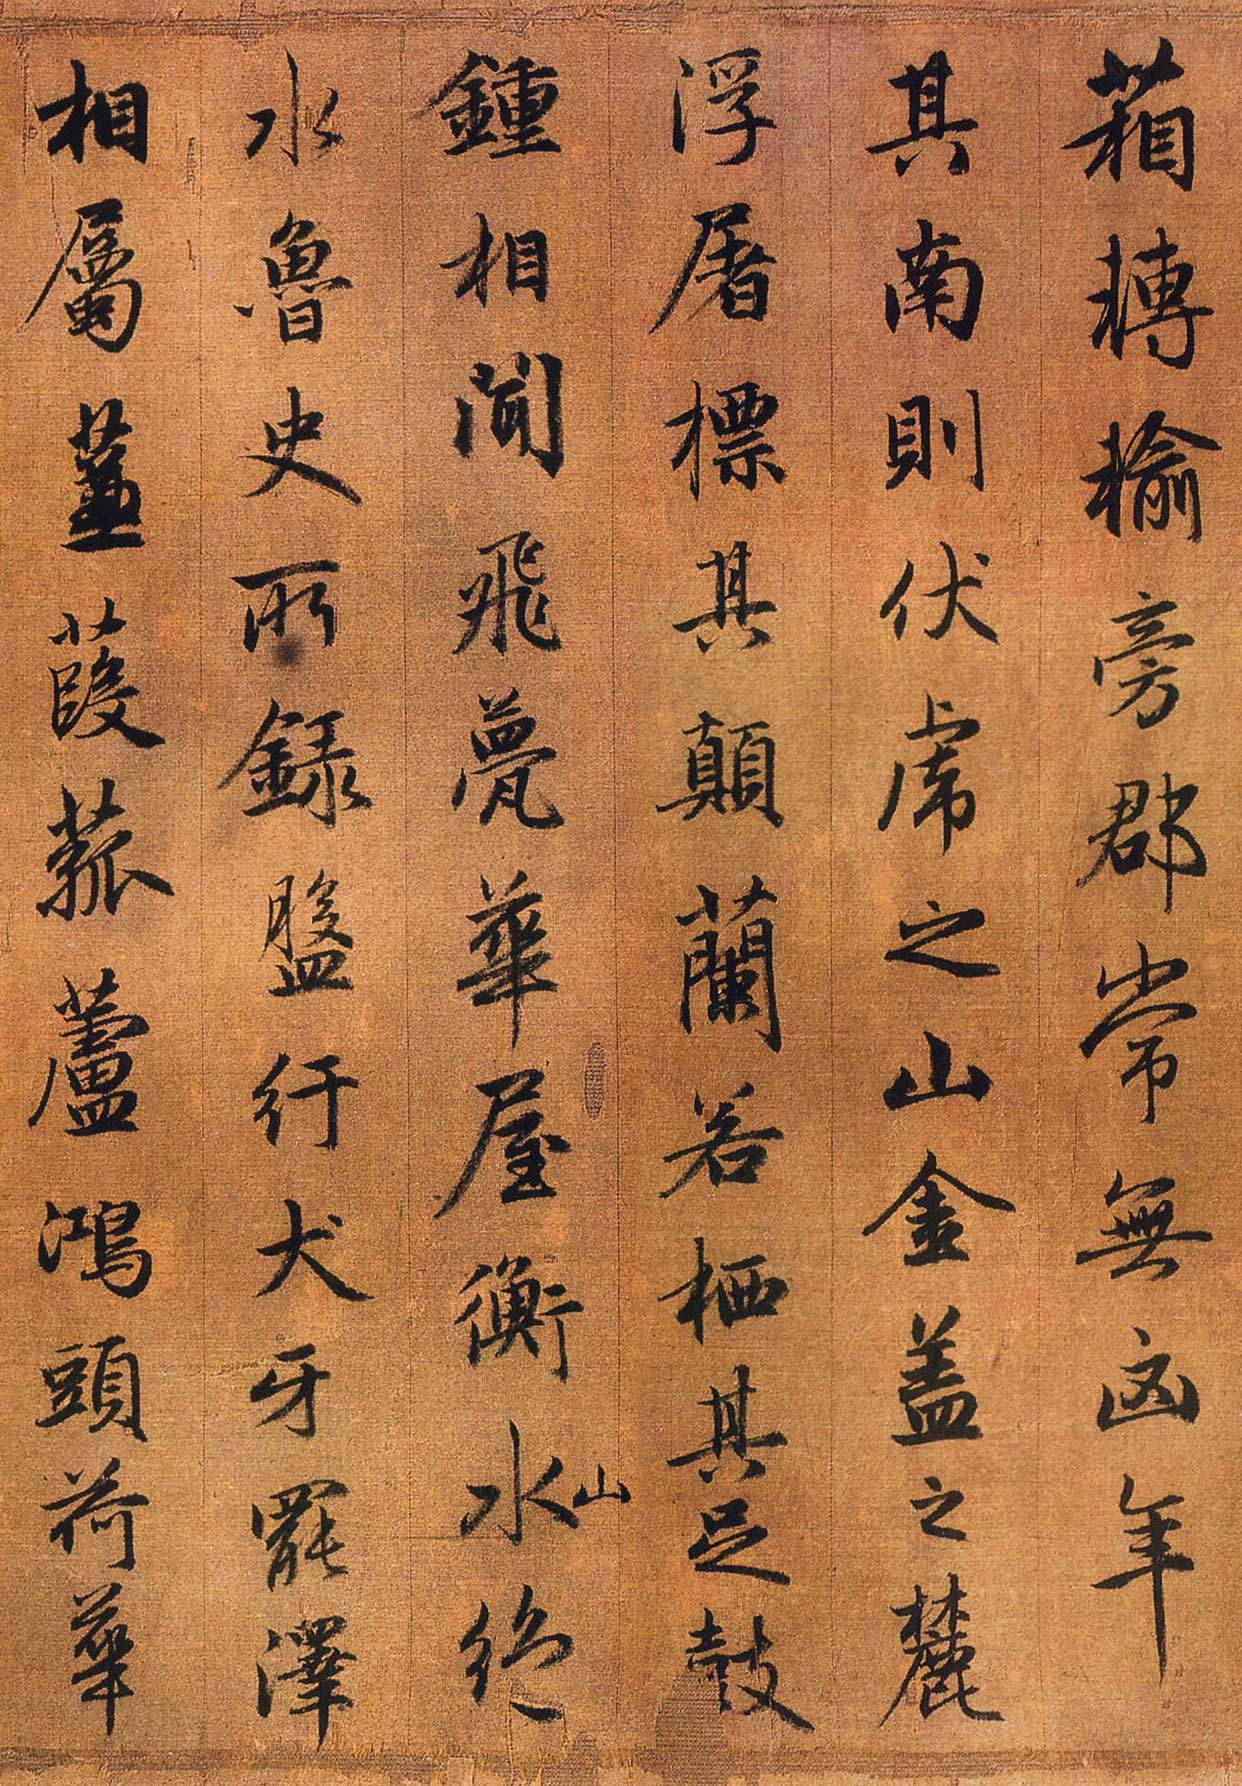 箱轉輸旁郡常無凶年
其南則伏虎之山金盖之麓
浮屠標其顛蘭若栖其足鼓
鍾相聞飛甍華屋衡水山絕
水魯史所錄盤紆犬牙罷澤
相屬蒹葭菰蘆鴻頭荷華